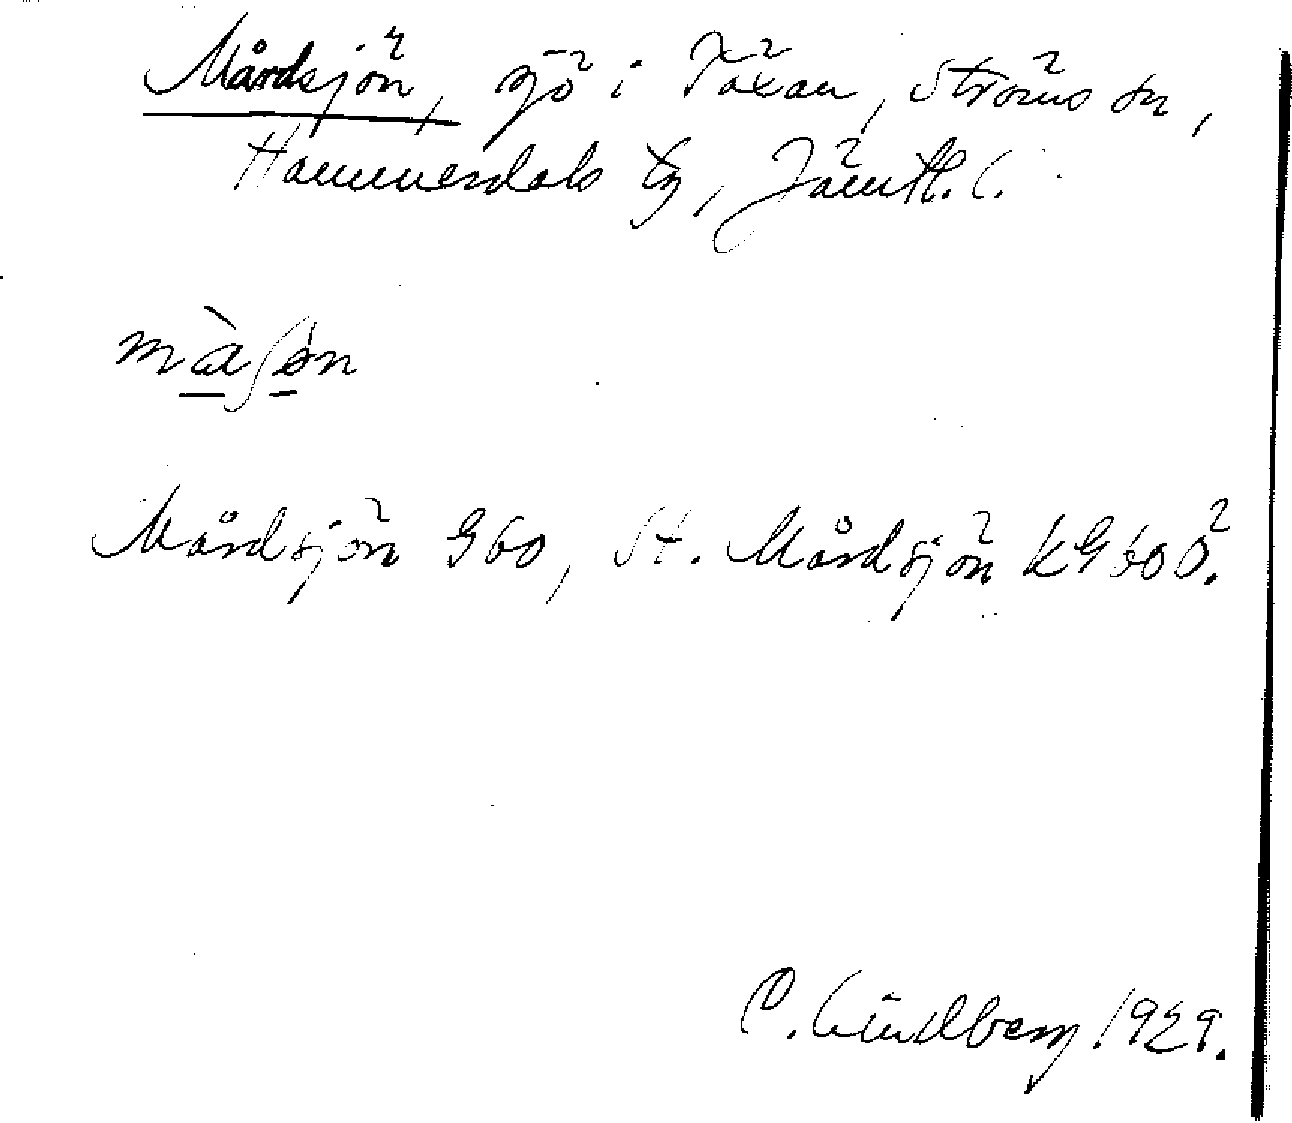 Mårdsjön, sjö i Täxan, Ströms sn,
Hammerdals tg, Jämtl. l.
màʃøn
Mårdsjön G60, St. Mårdsjön KG60Ö.
P. Lindberg 1929.